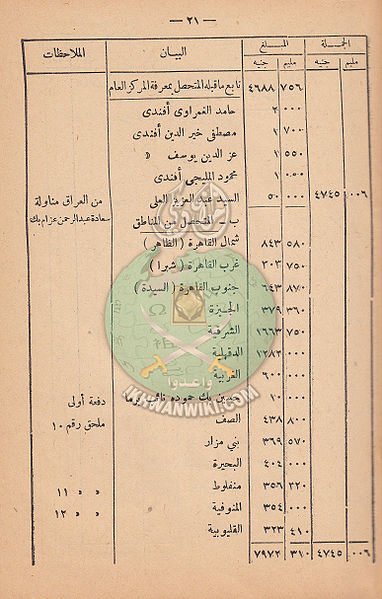 — ٢١ —
الجملة المبلغ البيان الملاحظات
مليم جنيه مليم جنيه
٧٥٦ ٤٦٨٨ تابع ما قبله المتحصل بمعرفة المركز العام
٠٠٠ ٢ حامد الغمراوى أفندى
٧٠٠ ١ مصطفى خير الدين أفندى
٥٥٠ ١ عز الدين يوسف »
٠٥٠ ١ محمود المليجى أفندى
٠٠٦ ٤٧٤٥ ٠٠٠ ٥٠ السيد عبد العزيز العلى من العراق مناولة
ب — المتحصل من المناطق سعادة عبد الرحمن عزام بك
٥٨٠ ٨٤٣ شمال القاهرة ( الظاهر )
٧٥٠ ٣٠٣ غرب القاهرة ( شبرا )
٨٧٠ ٦٤٣ جنوب القاهرة ( السيدة )
٣٦٠ ٣٧٩ الجيزة
٧٥٠ ١٦٦٣ الشرقية
٠٠٠ ١٢٨٢ الدقهلية
٠٠٠ ٦٠٠ الغربية
٠٠٠ ١٠ حسين بك حموده نائب دفعة أولى
٨٠٠ ٤٣٨ الصف ملحق رقم ١٠
٥٧٠ ٣٦٩ بنى مزار
٠٠٠ ٤٠٤ البحيرة
٣٢٠ ٣٥٦ منفلوط » » ١١
٠٠٠ ٣٥٤ المنوفية » » ١٢
٤١٠ ٣٢٣ القليوبية
٠٠٦ ٤٧٤٥ ٣١٠ ٧٩٧٢
وأعدوا
IKHWANWIKI.COM